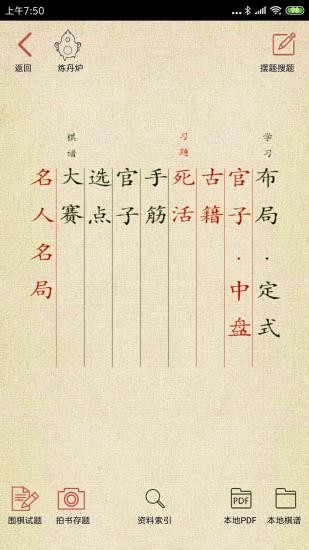 上午7:50
98
返回
炼丹炉
摆题搜题
学习
布局·定式
官子·中盘
习题
古籍
死活
手筋
官子
选点
棋谱
大赛
名人名局
围棋试题
拍书存题
资料索引
PDF
本地PDF
本地棋谱